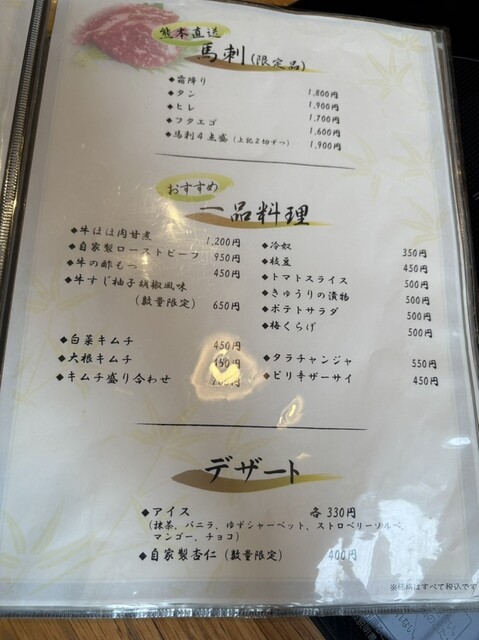 熊本直送
馬刺(限定品)
◆霜降り 1,800円
◆タン 1,900円
◆ヒレ 1,700円
◆フタエゴ 1,600円
◆馬刺4点盛(上記2切ずつ) 1,900円
おすすめ
一品料理
◆牛ほほ肉甘煮 1,200円
◆自家製ローストビーフ 950円
◆牛の酢もつ 450円
◆牛すじ柚子胡椒風味
(数量限定) 650円
◆白菜キムチ 450円
◆大根キムチ 450円
◆キムチ盛り合わせ
◆冷奴 350円
◆枝豆 450円
◆トマトスライス 500円
◆きゅうりの漬物 500円
◆ポテトサラダ 500円
◆梅くらげ 500円
◆タラチャンジャ 550円
◆ピリ辛ザーサイ 450円
デザート
◆アイス 各330円
(抹茶、バニラ、ゆずシャーベット、ストロベリーソルベ、
マンゴー、チョコ)
◆自家製杏仁(数量限定) 400円
※価格はすべて税込です